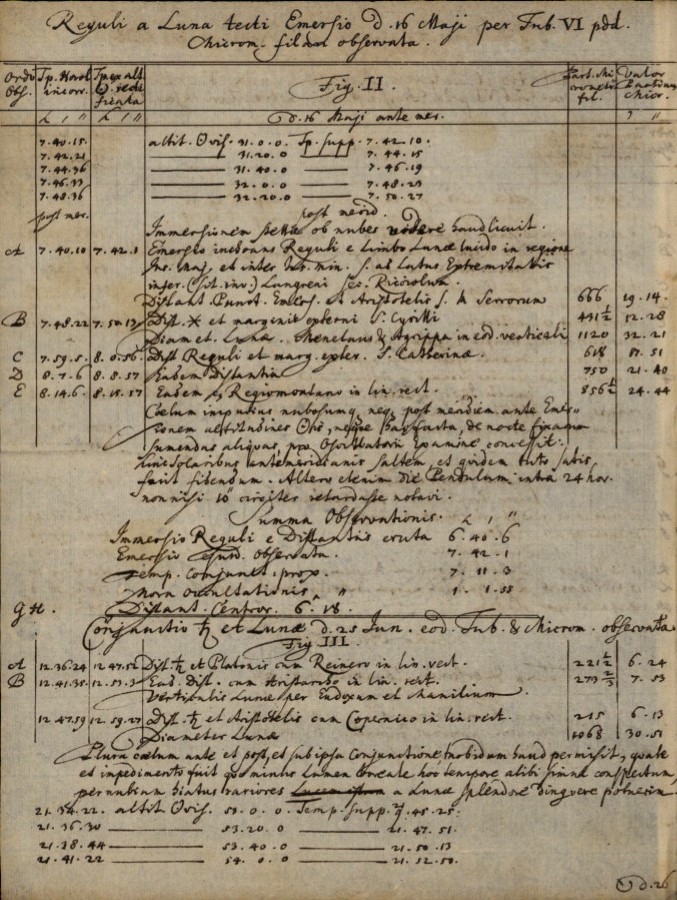 Reguli a Luna tecti Emersio d. 16 Maji per Tub. VI ped.
Microm. filar. observata.
Ordo Obs. Tp. Horol. incorr. Tp. ex alt. Fig. II. Part. Mi crometri fil. Valor Partium Micr.
d. 16 Maji ante mer.
7.40.15. altit. Oris. 31.0.0 Tp. supp. 7.42.10.
7.42.21 31.20.0 7.44.15
7.44.36 31.40.0 7.46.19
7.46.33 32.0.0 7.48.23
7.48.36 32.20.0 7.50.27
post mer. post merid.
Immersionem stellæ ob nubes videre haud licuit.
A 7.40.10 7.42.1 Emersio Reguli e limbo Lunæ lucido in regione
Ins. Maj. et inter Ins. min. s. ad Latus Extremitatis
infer. (sit. inv.) Langreni sec. Ricciolum.
Distant Punct. Emers. et Aristotelis s. M Serrorum 666 19.14.
B 7.48.22 7.50.13 Dist. * et marginis externi S. Cyrilli 431½ 12.28
Diamet. Lunæ. Menelaus & Agrippa in eod. verticali 1120 32.21
C 7.59.5. 8.0.56. Dist Reguli et marg. exter. S. Catherinæ. 618 17.51
D 8.7.6 8.8.57 Eadem Distantia 750 21.40
E 8.14.6. 8.15.57 Eadem Regiomontano in lin. rect. 856½ 24.44
Cœlum nubosumq; neq; post meridiem ante Emer-
sionem altitudines Oris, neque de nocte fixarum
sumendas aliquas, pro Examine concessit:
antemeridianis saltem, et quidem tuto satis,
fuit fidendum. Altero etenim die Pendulum intra 24 hor.
nonnisi 10" circiter retardasse notavi.
Summa Observationis.
Immersio Reguli e Distantiis eruta 6.40.6
Emersio ejusd. Observata. 7.42.1
Temp. Conjunct. prox. 7.11.3
Mora Occultationis 1.1.55
G H. Distant. Centror. 6'.18".
Conjunctio ♄ et Lunæ d. 25 Jun. eod. Tub. & Microm. observata.
Fig III.
A 12.36.24 12.47.52 Dist ♄ et Platonis cum Reinero in lin. rect. 221½ 6.24
B 12.41.35 12.53.3 Ead. Dist. cum Aristarcho in lin. rect. 273⅔ 7.53
Verticalis Lunæ per Eudoxum et Manilium
12.47.59 12.59.27 Dist. ♄ et Aristotelis cum Copernico in lin. rect. 215 6.13
Diameter Lunæ 1068 30.51
Plura cœlum ante et post, et sub ipsa Conjunctione turbidum haud permisit, quale
et impedimento fuit quo minus Lumen hoc tempore alibi conspectum,
per nubium hiatus rariores a Lunæ splendore dinguere potuerim.
21.34.22. altit Oris. 53.0.0. Temp. supp. 45.25.
21.36.30 53.20.0 21.47.51.
21.38.44 53.40.0 21.50.13
21.41.22 54.0.0 21.52.50.
d. 26